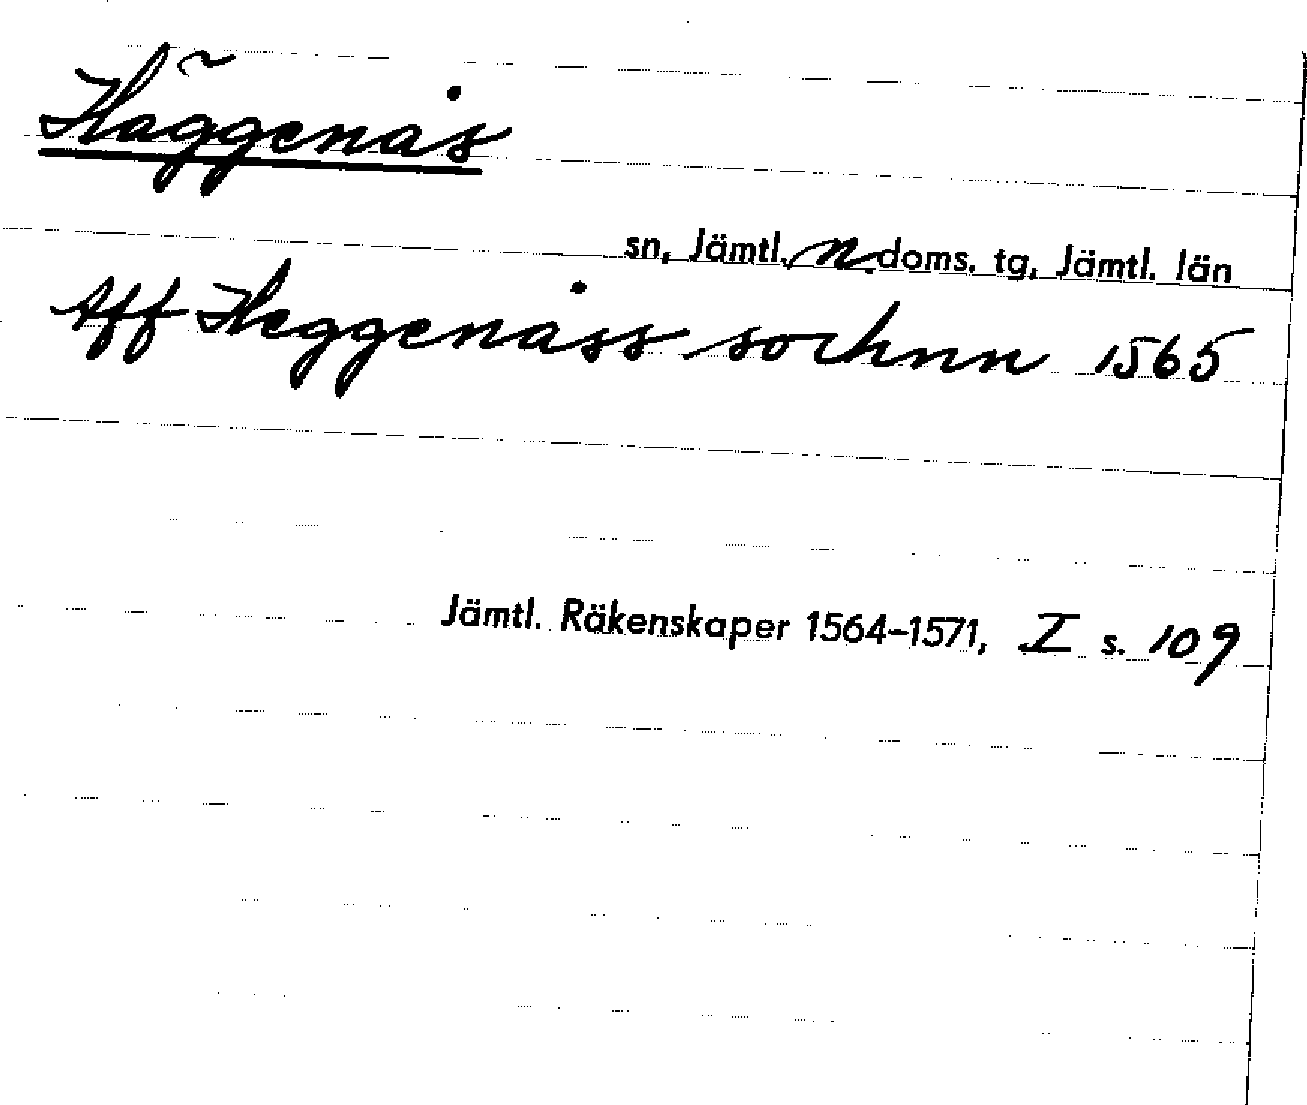 Häggenås
sn, Jämtl. n. doms. tg, Jämtl. län
Aff Heggenåss sochnn 1565
Jämtl. Räkenskaper 1564-1571, I s. 109